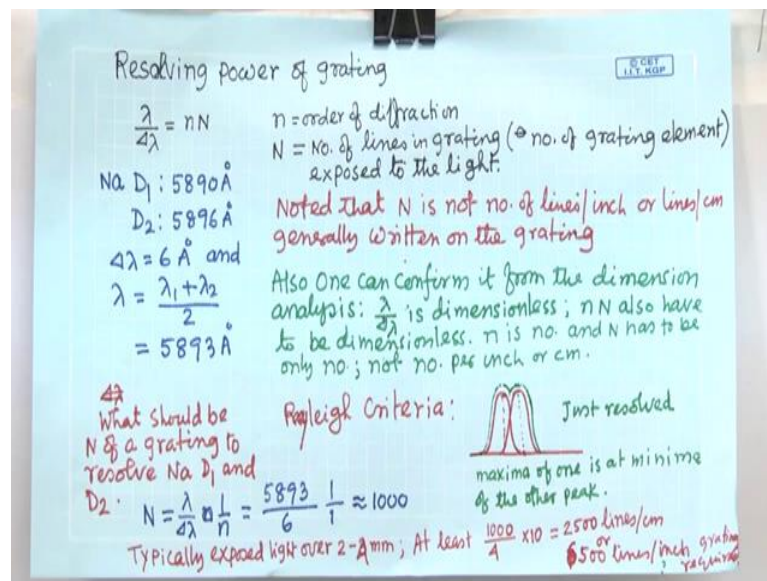 Resolving power of grating
© CET
I.I.T. KGP
λ/Δλ = nN
n = order of diffraction
N = No. of lines in grating (no. of grating element)
exposed to the light.
Na D₁ : 5890 Å
D₂ : 5896 Å
Δλ = 6 Å and
λ = (λ₁+λ₂)/2
= 5893 Å
Noted that N is not no. of lines/inch or lines/cm
generally written on the grating
Also One can confirm it from the dimension
analysis: λ/Δλ is dimensionless; nN also have
to be dimensionless. n is no. and N has to be
only no.; not no. per inch or cm.
What should be
N of a grating to
resolve Na D₁ and
D₂.
Rayleigh Criteria:
Just resolved
maxima of one is at minima
of the other peak.
N = λ/Δλ 1/n = 5893/6 1/1 ≈ 1000
Typically exposed light over 2-4 mm; At least 1000/4 ×10 = 2500 lines/cm
or
6500 lines/inch grating
required